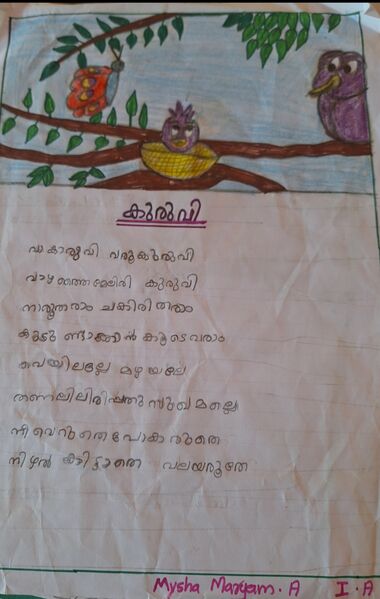 കുരുവി
വാ കുരുവി വരു കുരുവി
വാഴ ക്കൈമേലിരി കുരുവി
നാരു തരാം ചകിരി തരാം
കൂടു ണ്ടാക്കാൻ കൂടെ വരാം
വെയിലല്ലേ മഴയല്ലേ
തണലിലിരിപ്പതു സുഖമല്ലെ
നീ വെറുതെ പോകരുതെ
നിഴൽ കിട്ടാതെ വലയരുതേ
Mysha Maryam. A I. A